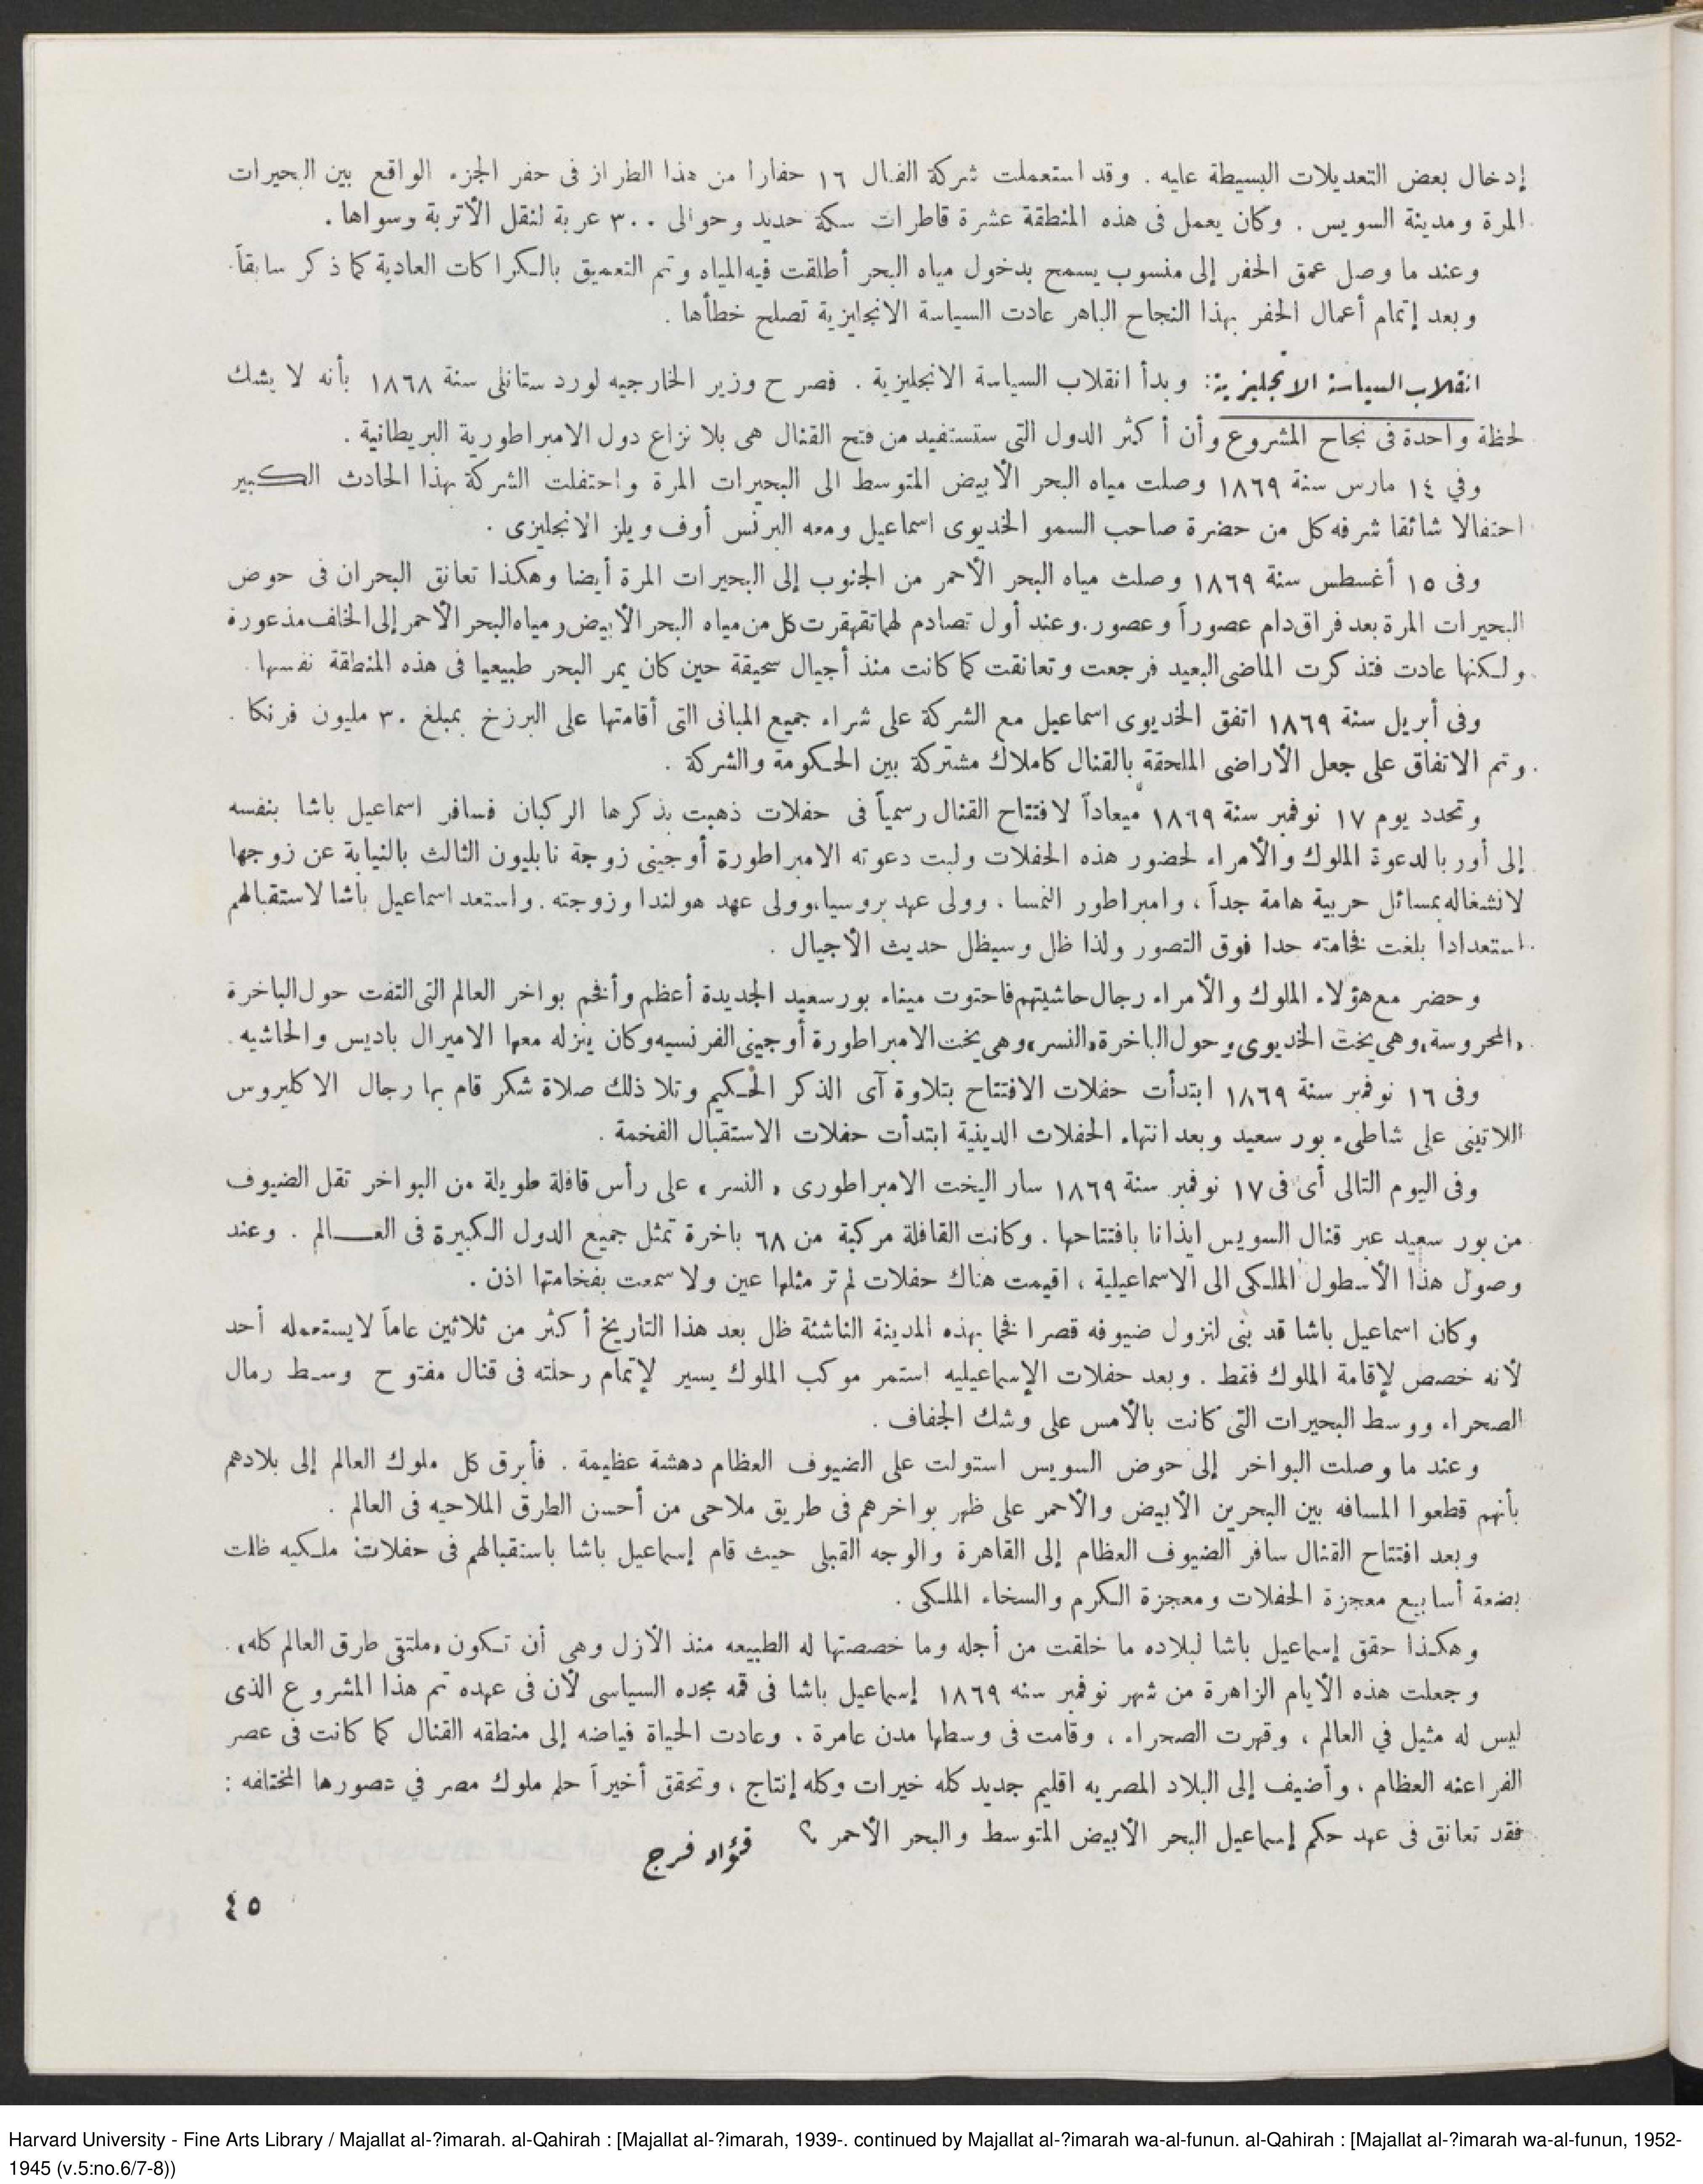 إدخال بعض التعديلات البسيطة عليه . وقد استعملت شركة القنال ١٦ حفارا من هذا الطراز فى حفر الجزء الواقع بين البحيرات
المرة ومدينة السويس . وكان يعمل فى هذه المنطقة عشرة قاطرات سكة حديد وحوالى ٣٠٠ عربة لنقل الأتربة وسواها .
وعند ما وصل عمق الحفر إلى منسوب يسمح بدخول مياه البحر أطلقت فيه المياه وتم التعميق بالكراكات العادية كما ذكر سابقاً .
وبعد إتمام أعمال الحفر بهذا النجاح الباهر عادت السياسة الانجليزية تصلح خطأها .
انقلاب السياسة الانجليزية : وبدأ انقلاب السياسة الانجليزية . فصرح وزير الخارجيه لورد ستانلى سنة ١٨٦٨ بأنه لا يشك
لحظة واحدة فى نجاح المشروع وأن أكثر الدول التى ستستفيد من فتح القنال هى بلا نزاع دول الامبراطورية البريطانية .
وفي ١٤ مارس سنة ١٨٦٩ وصلت مياه البحر الأبيض المتوسط الى البحيرات المرة واحتفلت الشركة بهذا الحادث الكبير
احتفالا شائقا شرفه كل من حضرة صاحب السمو الخديوى اسماعيل ومعه البرنس أوف ويلز الانجليزى .
وفى ١٥ أغسطس سنة ١٨٦٩ وصلت مياه البحر الأحمر من الجنوب إلى البحيرات المرة أيضا وهكذا تعانق البحران فى حوض
البحيرات المرة بعد فراق دام عصوراً وعصور . وعند أول تصادم لهما تقهقرت كل من مياه البحر الأبيض ومياه البحر الأحمر إلى الخلف مذعورة
ولكنها عادت فتذكرت الماضى البعيد فرجعت وتعانقت كما كانت منذ أجيال سحيقة حين كان يمر البحر طبيعيا فى هذه المنطقة نفسها .
وفى أبريل سنة ١٨٦٩ اتفق الخديوى اسماعيل مع الشركة على شراء جميع المبانى التى أقامتها على البرزخ بمبلغ ٣٠ مليون فرنكا .
وتم الاتفاق على جعل الأراضى الملحقة بالقنال كاملاك مشتركة بين الحكومة والشركة .
وتحدد يوم ١٧ نوفمبر سنة ١٨٦٩ ميعاداً لافتتاح القنال رسمياً فى حفلات ذهبت بذكرها الركبان فسافر اسماعيل باشا بنفسه
إلى أوربا لدعوة الملوك والأمراء لحضور هذه الحفلات ولبت دعوته الامبراطورة أوجينى زوجة نابليون الثالث بالنيابة عن زوجها
لانشغاله بمسائل حربية هامة جداً ، وامبراطور النمسا ، وولى عهد بروسيا، وولى عهد هولندا وزوجته . واستعد اسماعيل باشا لاستقبالهم
استعدادا بلغت فخامته حدا فوق التصور ولذا ظل وسيظل حديث الأجيال .
وحضر مع هؤلاء الملوك والأمراء رجال حاشيتهم فاحتوت ميناء بورسعيد الجديدة أعظم وأفخم بواخر العالم التى التفت حول الباخرة
«المحروسة» وهى يخت الخديوى وحول الباخرة «النسر» وهى يخت الامبراطورة أوجينى الفرنسيه وكان ينزله معها الاميرال باديس والحاشيه .
وفى ١٦ نوفمبر سنة ١٨٦٩ ابتدأت حفلات الافتتاح بتلاوة آى الذكر الحكيم وتلا ذلك صلاة شكر قام بها رجال الاكليروس
اللاتينى على شاطىء بور سعيد وبعد انتهاء الحفلات الدينية ابتدأت حفلات الاستقبال الفخمة .
وفى اليوم التالى أى فى ١٧ نوفمبر سنة ١٨٦٩ سار اليخت الامبراطورى « النسر » على رأس قافلة طويلة من البواخر تقل الضيوف
من بور سعيد عبر قنال السويس ايذانا بافتتاحها . وكانت القافلة مركبة من ٦٨ باخرة تمثل جميع الدول الكبيرة فى العـــالم . وعند
وصول هذا الأسطول الملكى الى الاسماعيلية ، اقيمت هناك حفلات لم تر مثلها عين ولا سمعت بفخامتها اذن .
وكان اسماعيل باشا قد بنى لنزول ضيوفه قصرا فخما بهذه المدينة الناشئة ظل بعد هذا التاريخ أكثر من ثلاثين عاماً لايستعمله أحد
لأنه خصص لإقامة الملوك فقط . وبعد حفلات الإسماعيليه استمر موكب الملوك يسير لإتمام رحلته فى قنال مفتوح وسط رمال
الصحراء ووسط البحيرات التى كانت بالأمس على وشك الجفاف .
وعند ما وصلت البواخر إلى حوض السويس استولت على الضيوف العظام دهشة عظيمة . فأبرق كل ملوك العالم إلى بلادهم
بأنهم قطعوا المسافه بين البحرين الأبيض والأحمر على ظهر بواخرهم فى طريق ملاحى من أحسن الطرق الملاحيه فى العالم .
وبعد افتتاح القنال سافر الضيوف العظام إلى القاهرة والوجه القبلى حيث قام إسماعيل باشا باستقبالهم فى حفلات ملكيه ظلت
بضعة أسابيع معجزة الحفلات ومعجزة الكرم والسخاء الملكى .
وهكذا حقق إسماعيل باشا لبلاده ما خلقت من أجله وما خصصتها له الطبيعه منذ الأزل وهى أن تكون «ملتقى طرق العالم كله» .
وجعلت هذه الأيام الزاهرة من شهر نوفمبر سنه ١٨٦٩ إسماعيل باشا فى قمه مجده السياسى لأن فى عهده تم هذا المشروع الذى
ليس له مثيل في العالم ، وقهرت الصحراء ، وقامت فى وسطها مدن عامرة . وعادت الحياة فياضه إلى منطقه القنال كما كانت فى عصر
الفراعنه العظام ، وأضيف إلى البلاد المصريه اقليم جديد كله خيرات وكله إنتاج ، وتحقق أخيراً حلم ملوك مصر في عصورها المختلفه :
فقد تعانق فى عهد حكم إسماعيل البحر الأبيض المتوسط والبحر الأحمر ؟ فؤاد فرج
٤٥
Harvard University - Fine Arts Library / Majallat al-?imarah. al-Qahirah : [Majallat al-?imarah, 1939-. continued by Majallat al-?imarah wa-al-funun. al-Qahirah : [Majallat al-?imarah wa-al-funun, 1952-
1945 (v.5:no.6/7-8))